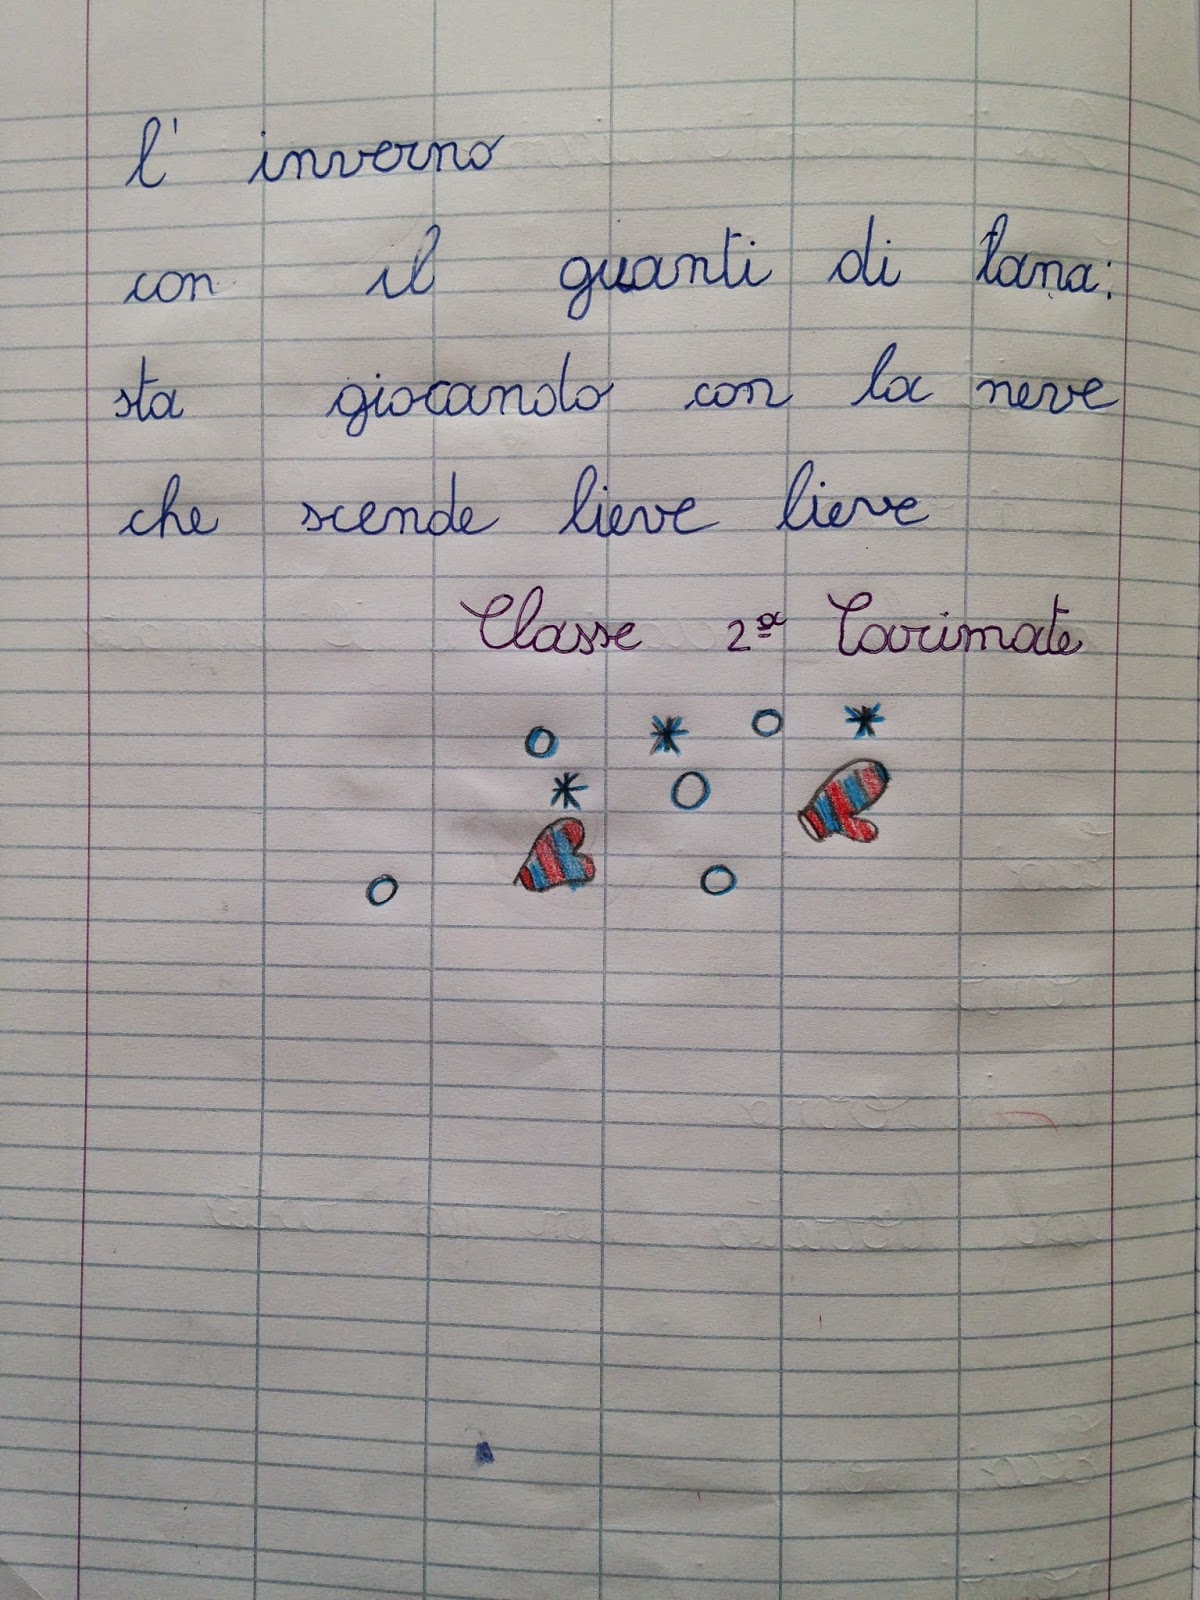 l' inverno
con il guanti di lana:
sta giocando con la neve
che scende lieve lieve
Classe 2ª Carimate